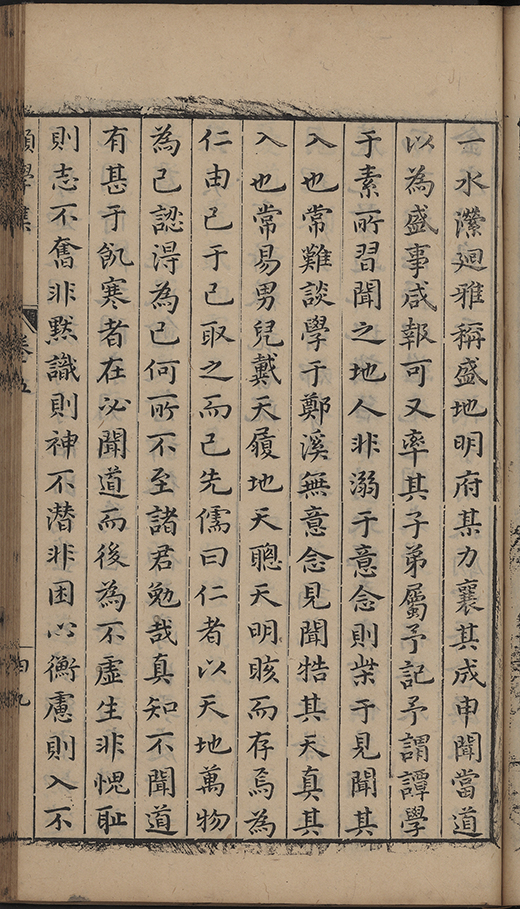 一水瀠廻雅稱盛地明府某力襄其成申聞當道
以為盛事咸報可又率其子弟屬予記予謂譚學
于素所習聞之地人非溺于意念則柴于見聞其
入也常難談學于鄭溪無意念見聞牿其天真其
入也常易男兒戴天履地天聰天明晐而存焉為
仁由己于己取之而已先儒曰仁者以天地萬物
為己認得為己何所不至諸君勉哉真知不聞道
有甚于飢寒者在必聞道而後為不虛生非愧恥
則志不奮非黙識則神不潜非困心衡慮則入不
願學集
卷五